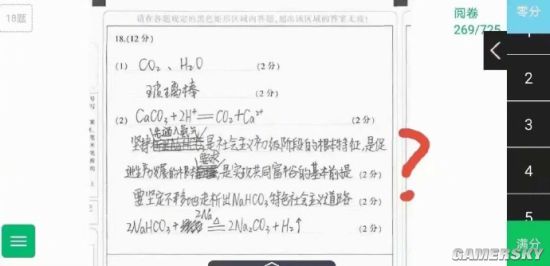 18题
请在各题规定的黑色矩形区域内答题,超出该区域的答案无效!
阅卷
269/725
零分
18.(12分)
(1) CO₂、H₂O (2分)
玻璃棒 (2分)
(2) CaCO₃+2H⁺=CO₂+Ca²⁺ (2分)
坚持 是社会主义初级阶段的根本特征,是促
进生产发展的根本 要求,是实现共同富裕的基本前提 (2分)
要坚定不移地走析出NaHCO₃特色社会主义道路 (2分)
2NaHCO₃+2Na △ 2Na₂CO₃+H₂↑ (2分)
?
1
2
3
4
5
满分
GAMERSKY